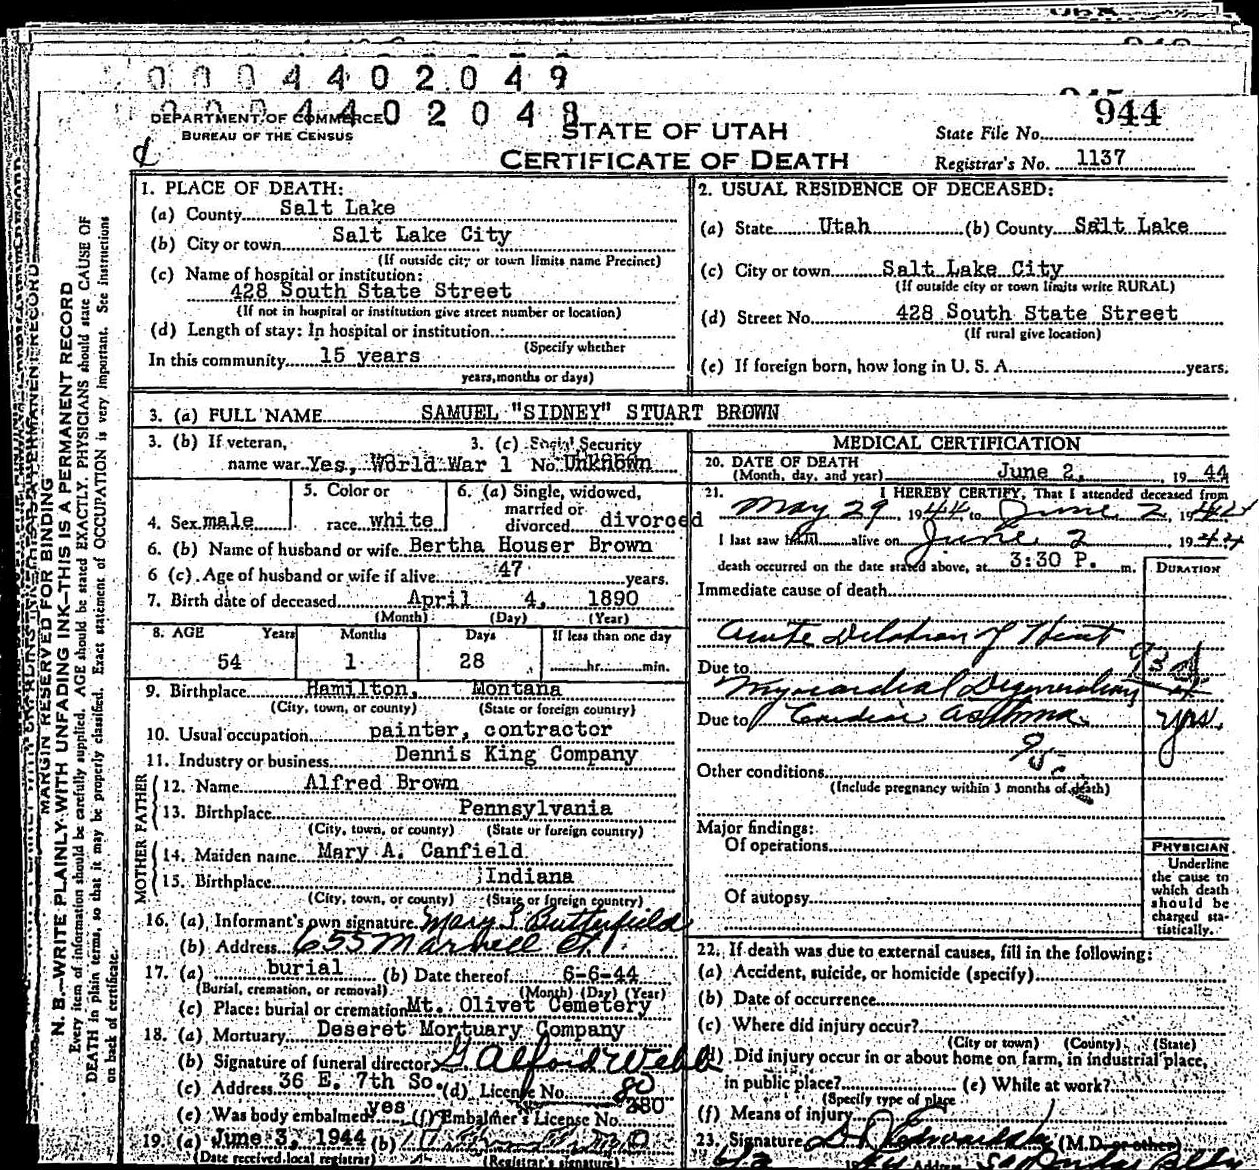 0004402049
0004402048
944
DEPARTMENT OF COMMERCE
BUREAU OF THE CENSUS
STATE OF UTAH
CERTIFICATE OF DEATH
State File No.
Registrar's No. 1137
MARGIN RESERVED FOR BINDING
N. B.—WRITE PLAINLY WITH UNFADING INK—THIS IS A PERMANENT RECORD
Every item of information should be carefully supplied. AGE should be stated EXACTLY. PHYSICIANS should state CAUSE OF
DEATH in plain terms, so that it may be properly classified. Exact statement of OCCUPATION is very important. See instructions
on back of certificate.
1. PLACE OF DEATH:
(a) County Salt Lake
(b) City or town Salt Lake City
(If outside city or town limits name Precinct)
(c) Name of hospital or institution:
428 South State Street
(If not in hospital or institution give street number or location)
(d) Length of stay: In hospital or institution
(Specify whether
In this community 15 years
years, months or days)
2. USUAL RESIDENCE OF DECEASED:
(a) State Utah (b) County Salt Lake
(c) City or town Salt Lake City
(If outside city or town limits write RURAL)
(d) Street No. 428 South State Street
(If rural give location)
(e) If foreign born, how long in U. S. A. years.
3. (a) FULL NAME SAMUEL "SIDNEY" STUART BROWN
3. (b) If veteran, 3. (c) Social Security
name war Yes, World War 1 No. Unknown
4. Sex male
5. Color or
race white
6. (a) Single, widowed,
married or
divorced divorced
6. (b) Name of husband or wife Bertha Houser Brown
6 (c). Age of husband or wife if alive 47 years.
7. Birth date of deceased April 4, 1890
(Month) (Day) (Year)
8. AGE Years Months Days If less than one day
54 1 28 hr. min.
9. Birthplace Hamilton, Montana
(City, town, or county) (State or foreign country)
10. Usual occupation painter, contractor
11. Industry or business Dennis King Company
FATHER
12. Name Alfred Brown
13. Birthplace Pennsylvania
(City, town, or county) (State or foreign country)
MOTHER
14. Maiden name Mary A. Canfield
15. Birthplace Indiana
(City, town, or county) (State or foreign country)
16. (a) Informant's own signature Mary S. Butterfield
(b) Address 655 Ct.
17. (a) burial (b) Date thereof 6-6-44
(Burial, cremation, or removal) (Month) (Day) (Year)
(c) Place: burial or cremation Mt. Olivet Cemetery
18. (a) Mortuary Deseret Mortuary Company
(b) Signature of funeral director G Alford Webb
(c) Address 36 E. 7th So. (d) License No. 80
(e) Was body embalmed yes (f) Embalmer's License No. 280
19. (a) June 3, 1944 (b)
(Date received local registrar) (Registrar's signature)
MEDICAL CERTIFICATION
20. DATE OF DEATH
(Month, day, and year) June 2, 1944
21. I HEREBY CERTIFY, That I attended deceased from
May 29 1944, to June 2, 1944
I last saw him alive on June 2, 1944
death occurred on the date stated above, at 3:30 P. m.
DURATION
Immediate cause of death
Acute Dilation of Heart
Due to
Myocardial Degeneration
Due to Cardiac asthma yrs.
95c
Other conditions
(Include pregnancy within 3 months of death)
Major findings:
Of operations
Of autopsy
PHYSICIAN
Underline
the cause to
which death
should be
charged sta-
tistically.
22. If death was due to external causes, fill in the following:
(a) Accident, suicide, or homicide (specify)
(b) Date of occurrence
(c) Where did injury occur?
(City or town) (County) (State)
(d) Did injury occur in or about home on farm, in industrial place,
in public place? (e) While at work?
(Specify type of place
(f) Means of injury
23. Signature (M.D. or other)